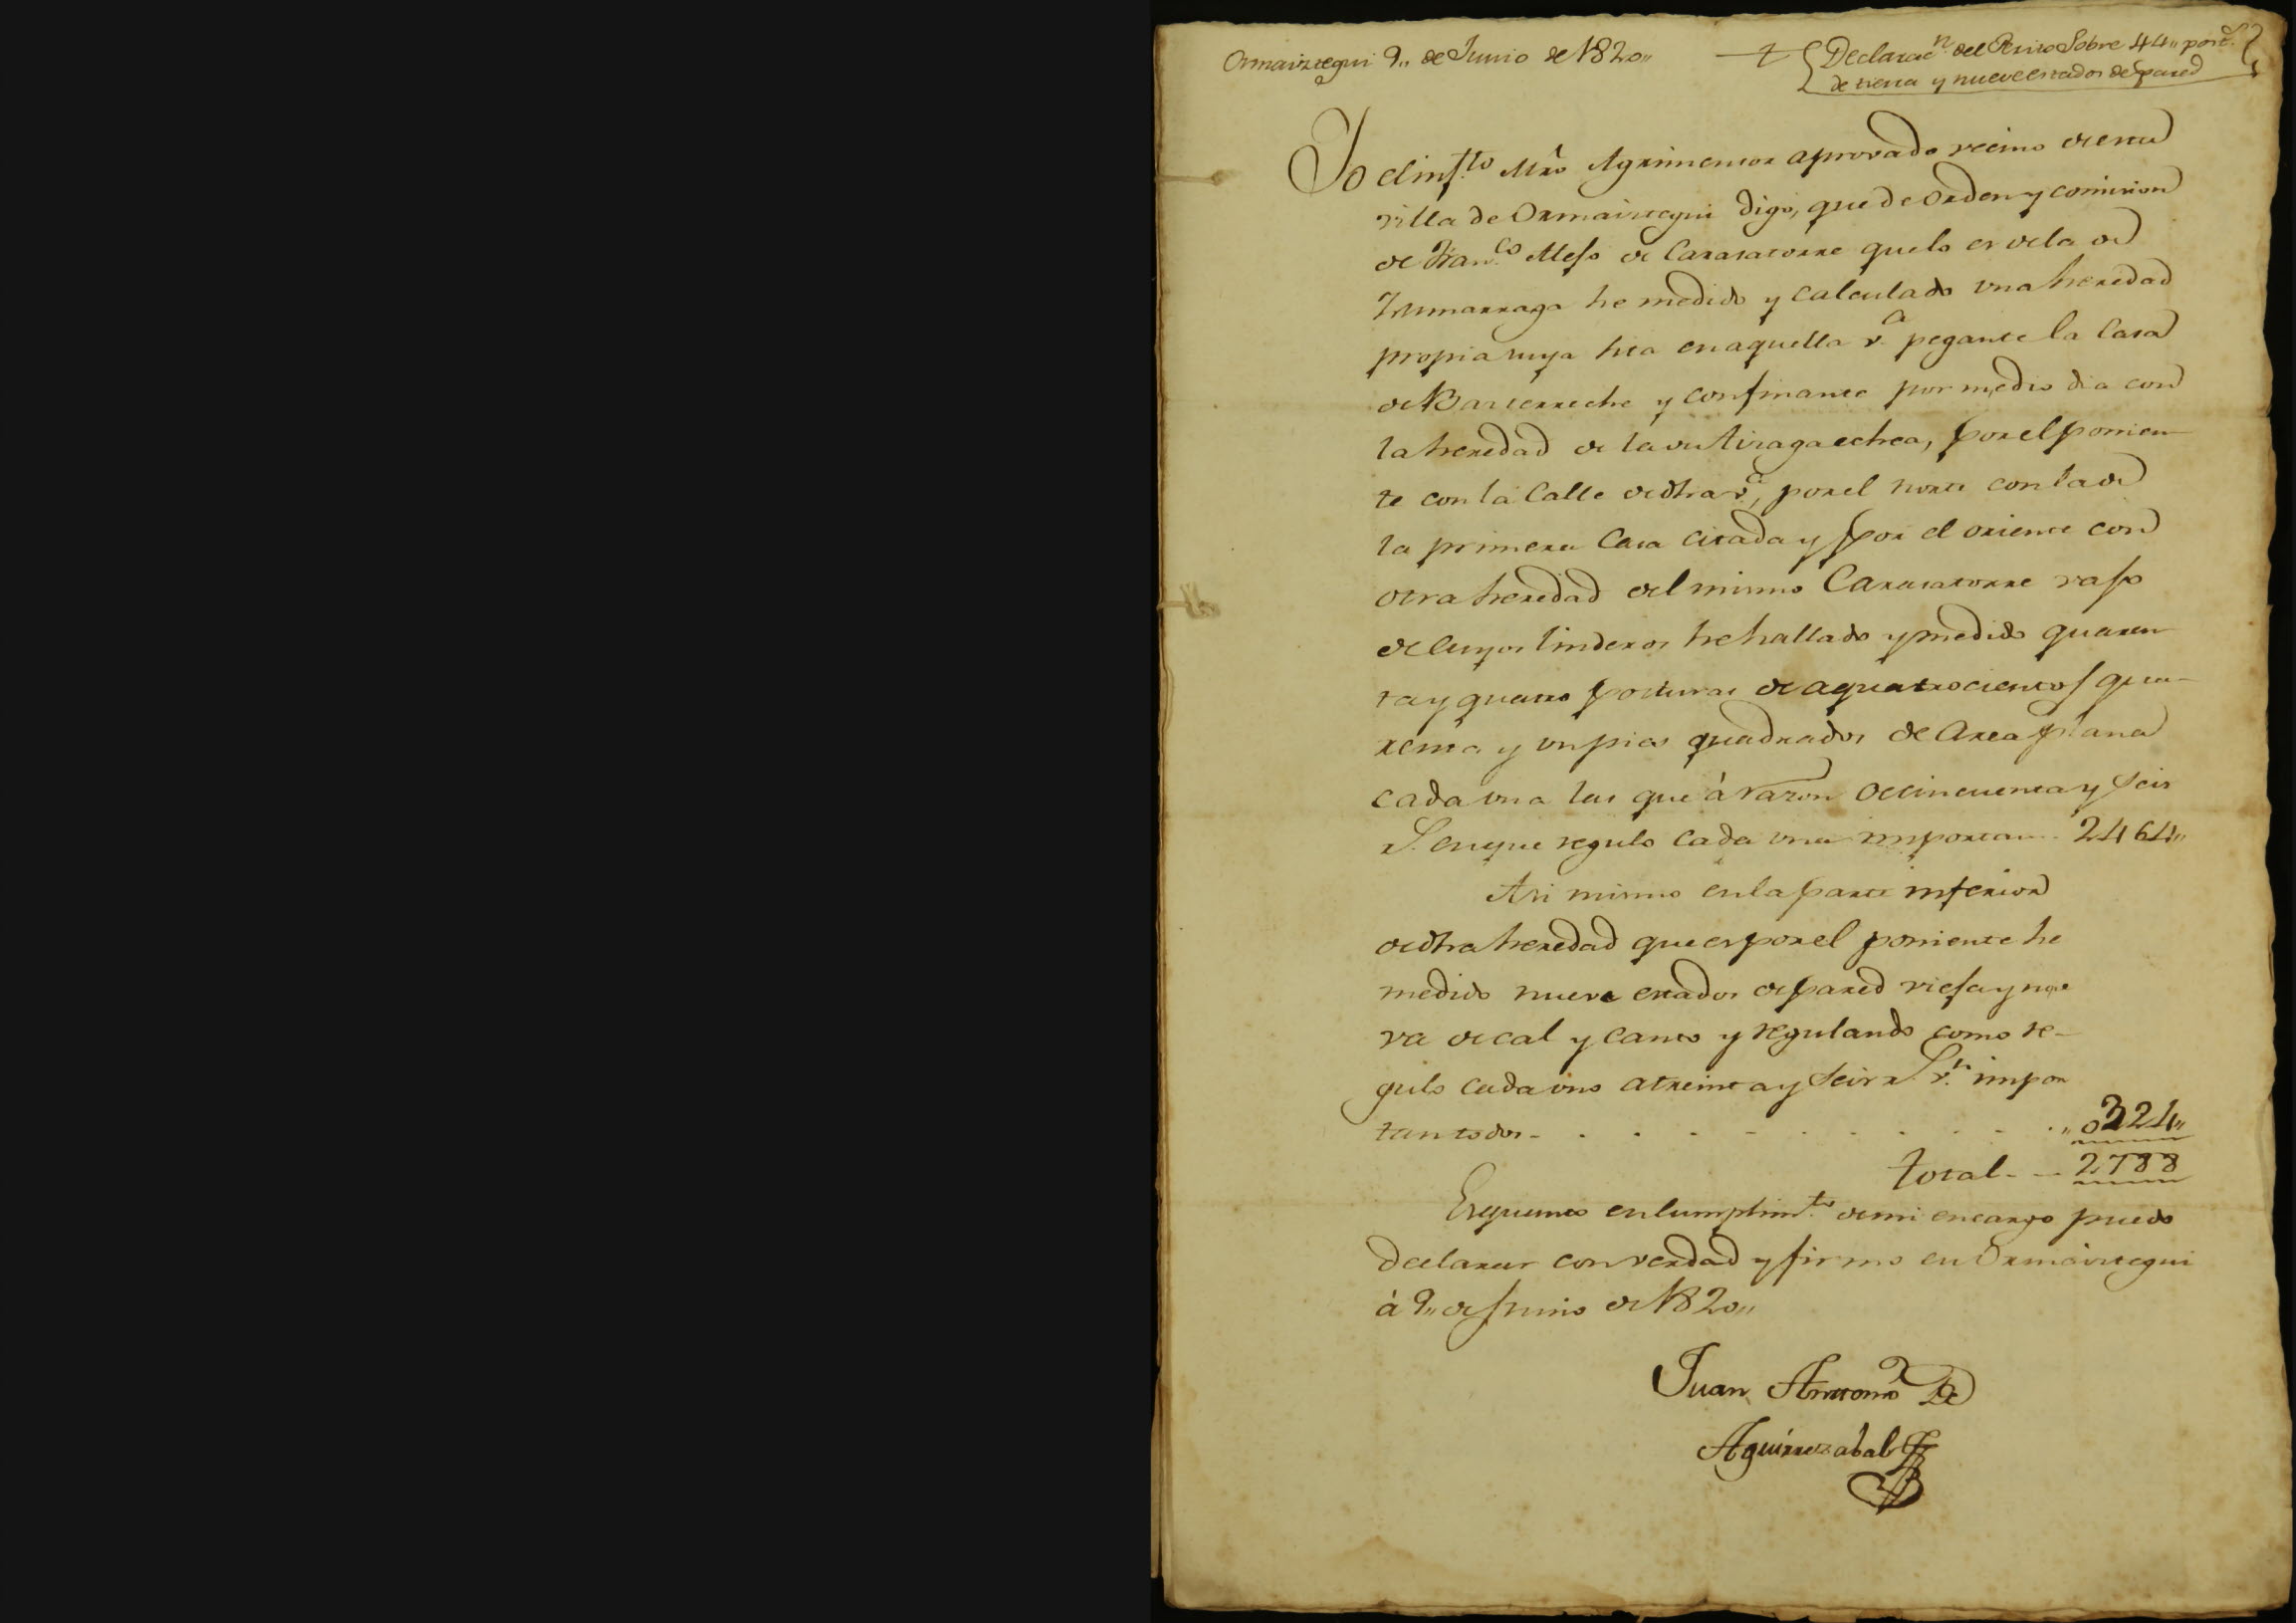 Ormaiztegui 9,, de Junio de 1820,,
Declarac.n del Perito Sobre 44,, post.s
de tierra y nueve estados de pared
Yo el inf.to Mro Agrimensor aprovado vecino de esta
villa de Ormaiztegui digo, que de orden y comision
de Fran.co Meso de Carasatorre que lo es de la de
Zumarraga he medido y calculado una heredad
propia suya sita en aquella v.a pegante la Casa
de Basterreche y confinante por medio dia con
la heredad de la de Aizagaechea, por el ponien-
te con la Calle de dha v.a, por el norte con la de
la primera Casa citada y por el oriente con
otra heredad del mismo Carasatorre vajo
de cuyos linderos he hallado y medido quaren
ta y quatro posturas de a quatrocientos qua-
renta y un pies quadrados de Area plana
cada una las que à razon de cincuenta y seis
r.s en que regulo cada una importan 2464,,
Asi mismo en la parte inferior
de dha heredad que es por el poniente he
medido nueve estados de pared vieja y nue
va de cal y canto y regulando como re-
gulo cada uno a treinta y seis r.s v.n impor
tan todos - . . . - . . . - . ,,0324,,
total - - 2788
Es quanto en cumplim.to de mi encargo puedo
declarar con verdad y firmo en Ormaiztegui
à 9,, de Junio de 1820,,
Juan Antonio de
Aguirrezabal